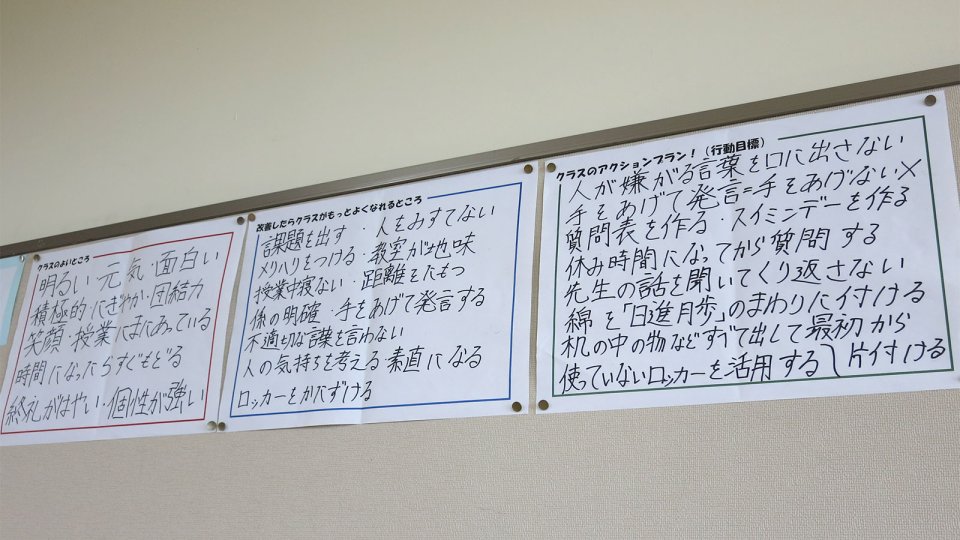 クラスのよいところ
明るい・元気・面白い
積極的・にぎやか・団結力
笑顔・授業にまにあっている
時間になったらすぐもどる
終礼がはやい・個性が強い
改善したらクラスがもっとよくなれるところ
課題を出す ・人をみすてない
メリハリをつける・教室が地味
授業中寝ない・距離をたもつ
係の明確・手をあげて発言する
不適切な言葉を言わない
人の気持ちを考える 素直になる
ロッカーをかたずける
クラスのアクションプラン!(行動目標)
人が嫌がる言葉を口に出さない
手をあげて発言=手をあげない×
質問表を作る・スイミンデーを作る
休み時間になってから質問する
先生の話を聞いてくり返さない
綿を「日進月歩」のまわりに付ける
机の中の物などすべて出して最初から
使っていないロッカーを活用する 片付ける